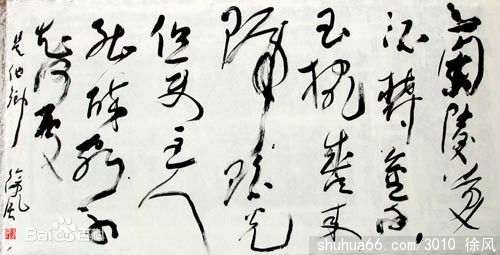 蘭陵美
酒鬱金香
玉椀盛来
琥珀光
但使主人
能醉客不
知何處
是他鄉 徐风
Bai百科
shuhua66.com/3010 徐风